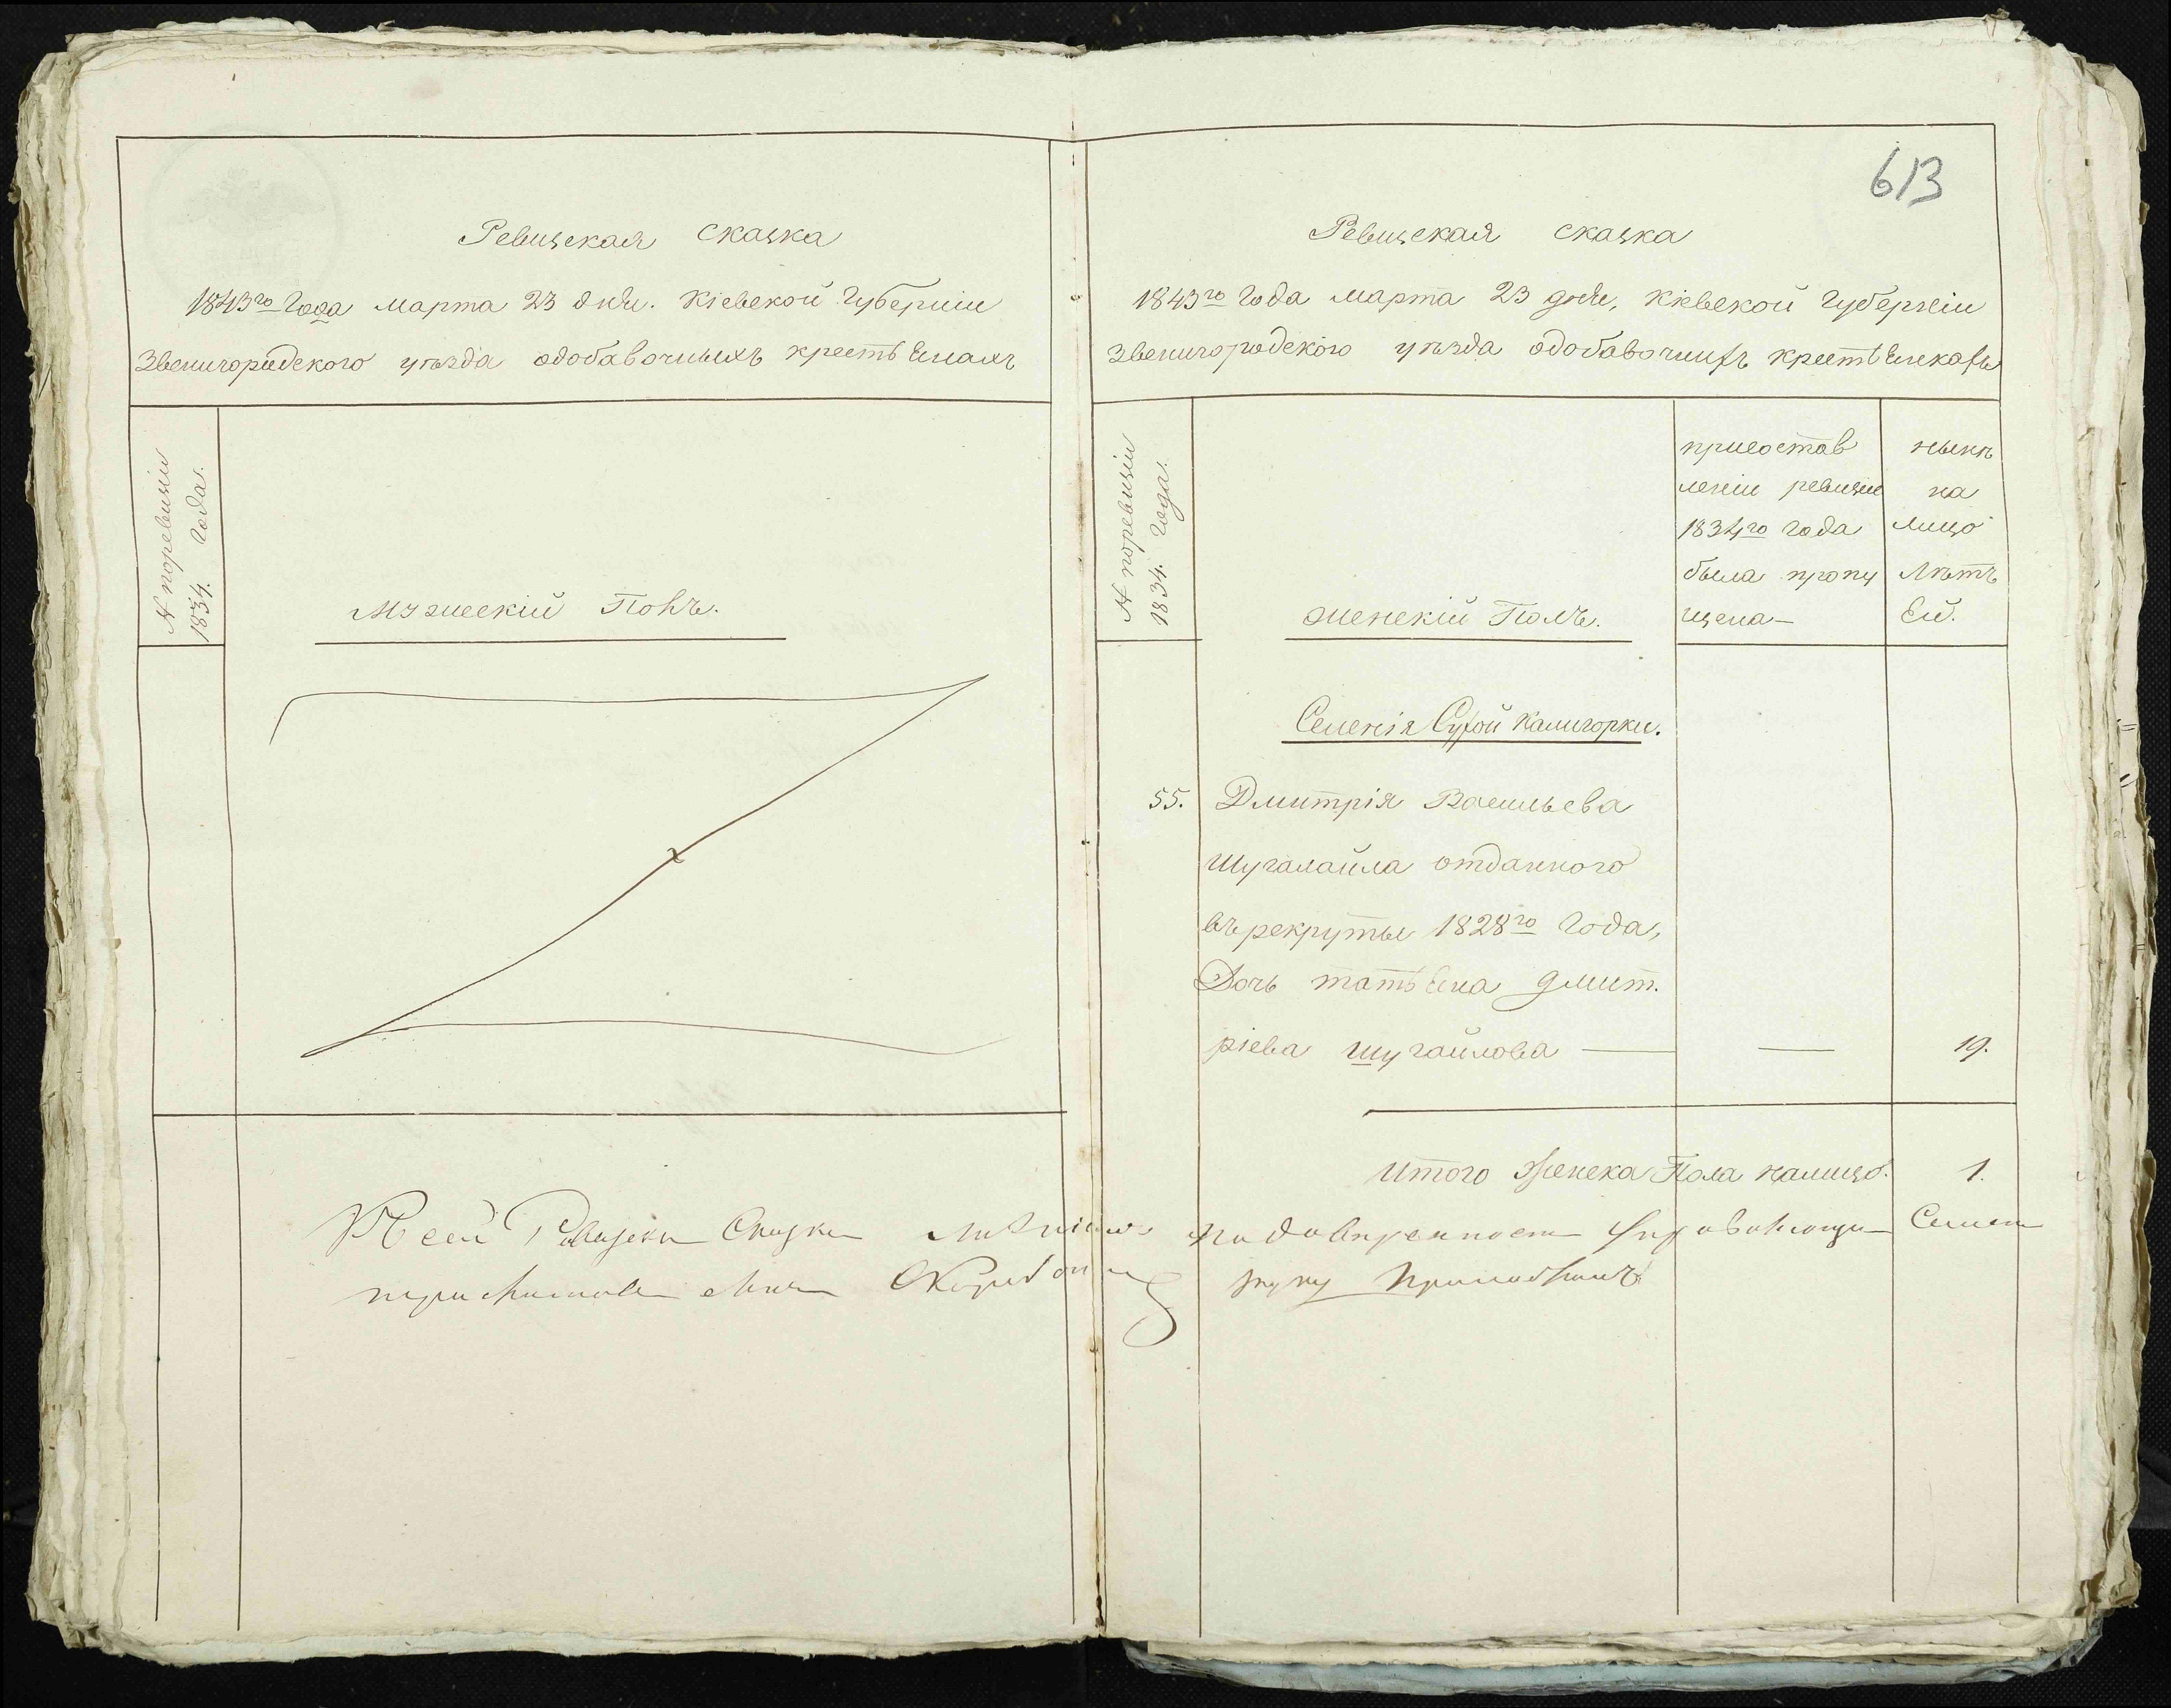 Ревизская сказка
1843го Года марта 23 дня. Кіевской Губерніи
Звенигородского уѣзда одобавочныхъ крестьянахъ
№ поревизіи
1834. года.
Мужескій Полъ.
613
Ревизская сказка
1843го Года марта 23 дня, Кіевской Губерніи
Звенигородского уѣзда одобавочных крестьянках
№ поревизіи
1834. Года.
женскій Полъ.
присостав
леніи ревизіи
1834го года
была пропу
щена—
нынѣ
на
лицо
Лѣтъ
Ей.
Селенія Сухой Калигорки.
55. Дмитрія Васильева
Шугалайла отданного
въ рекруты 1828го Года,
Дочь татьяна Дмит.
ріева шугайлова — — 19.
Итого Женска Пола налицо. 1.
К сей Ревизской Сказки
руку Приложилъ